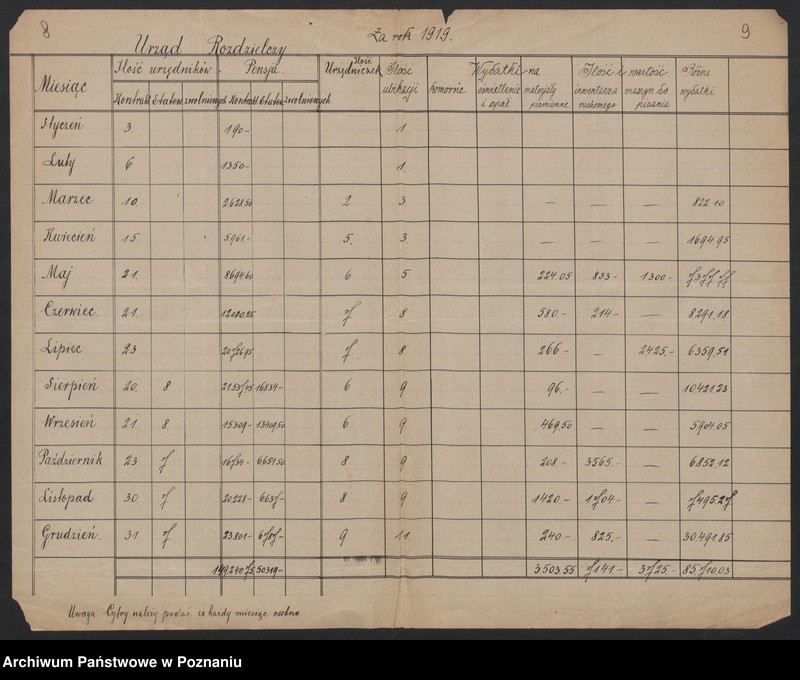 8
9
Za rok 1919.
Urząd Rozdzielczy
Miesiąc
Ilość urzędników. Pensja.
Kontrakt Etatow. zwolnionych Kontrakt Etatow zwolnionych
Ilość Urzędniczek
Ilość ubikacji
Wydatki na
komorne oświetlenie i opał materjały piśmienne
Ilość i wartość
inwentarza ruchomego maszyn do pisania
Różne wydatki
Styczeń 3. 190- 1
Luty 6 1350- 1
Marzec 10 262850 2 3 — — — 822.10
Kwiecień 15. 5961.- 5. 3. — — — 1694.95
Maj 21. 869460 6 5 224.05 833- 1300-
Czerwiec 21. 7 8 580.- 214- 8291.18
Lipiec 23 7 8 266- - 2425.- 6359.51
Sierpień 20. 8 16834- 6 9 96.- — — 10421.23
Wrzesień 21. 8 15309- 1340950 6 9 469.50 — — 5904.05
Październik 23 7 16734- 665150 8 9 208- 3565.- — 6852.12
Listopad 30. 7 20228- 6637- 8 9 1420.- 1704.- — 7495.27
Grudzień 31 7 23801- 9 11. 240- 825.- — 30.491.85
149.24075 50319- 3503.55 7141.- 3725.- 85.710.03
Uwaga. Cyfry należy podać za każdy miesiąc osobno.
Archiwum Państwowe w Poznaniu